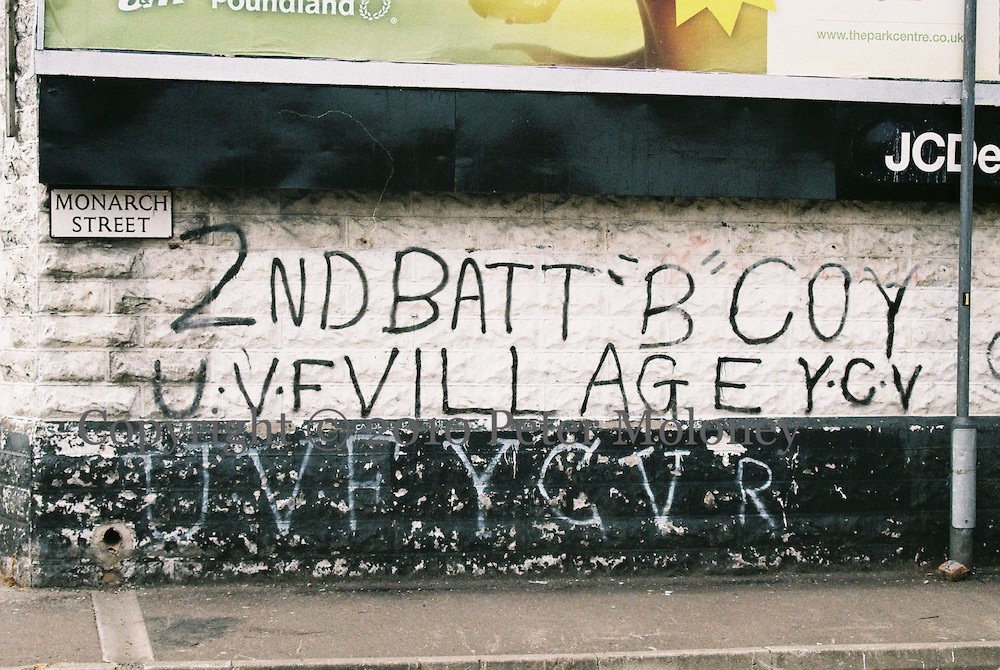 Poundland
www.theparkcentre.co.uk
JCDe
MONARCH
STREET
2ND BATT "B" COY
U.V.F VILLAGE Y.C.V
Copyright © 2010 Peter Moloney
UVF YCV R